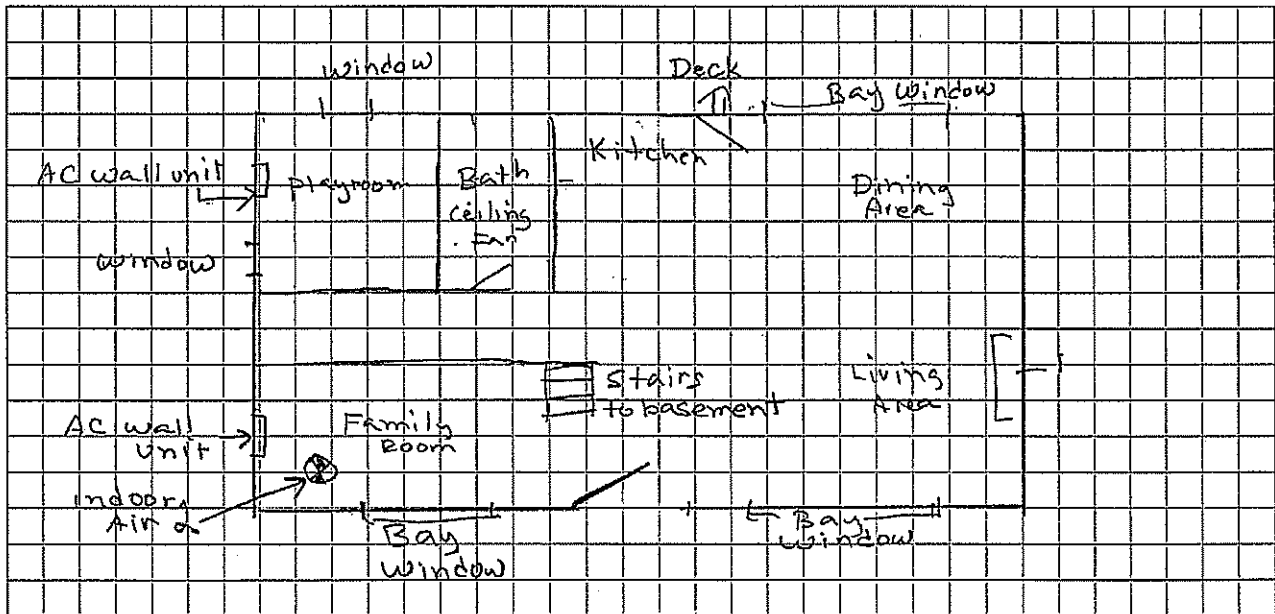 Window
Deck
Bay Window
Kitchen
AC wall unit
playroom
Bath
ceiling
Fan
Dining
Area
window
Stairs
to basement
Living
Area
AC wall
unit
Family
Room
indoor
Air
Bay
Window
Bay
Window